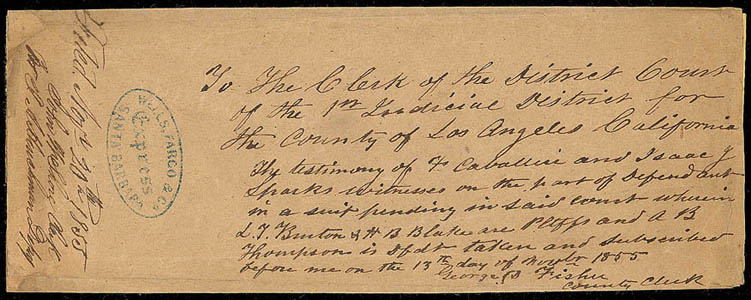 To The Clerk of the District Court
of the 1st Judicial District for
the County of Los Angeles California
The testimony of F Caballeri and Isaac J
Sparks witnesses on the part of Defendant
in a suit pending in said Court wherein
L. T. Burton & H B Blake are Pltffs and A B
Thompson is Dfdt taken and subscribed
before me on the 13th day of Novbr 1855
George D Fisher
County Clerk
WELLS, FARGO & CO.
Express
SANTA BARBARA
Filed Nov 20th 1855